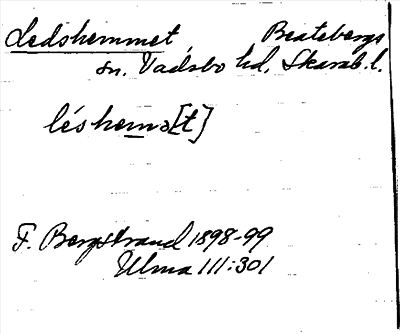 Ledshemmet, Beatebergs
sn. Vadsbo hd, Skarab. l.
léshemə[t]
F. Bergstrand 1898-99
Ulma 111:301